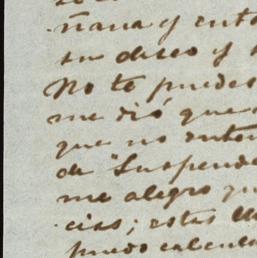 ñana y
su deseo y
No te puedes
me dió que
que no
de "Suspende
me alegro
cias; estas
puedo calcula